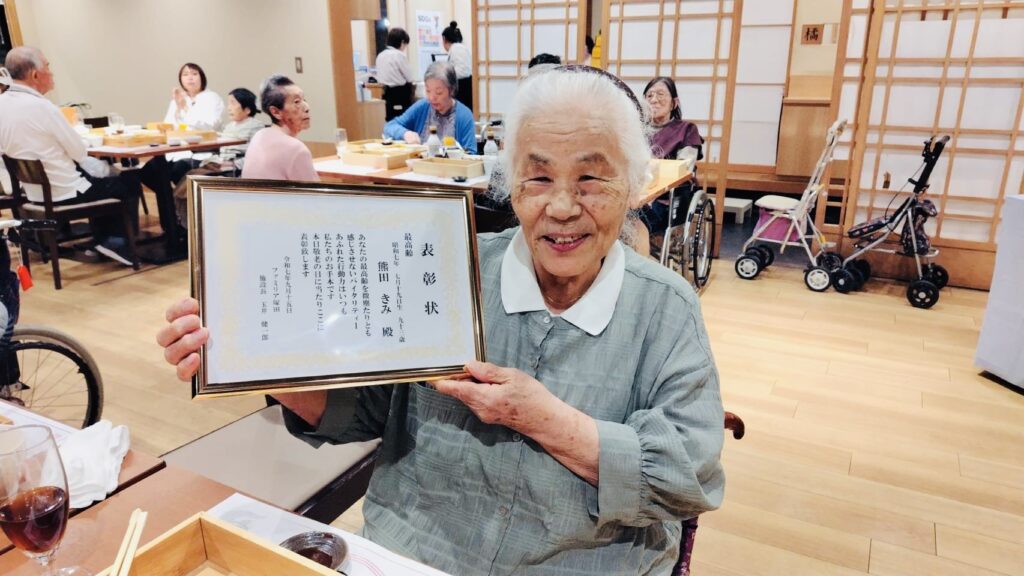 表彰状
最高齢
昭和七年 七月十九日生 九十三歳
熊田 きみ 殿
あなたの最高齢を微塵たりとも
感じさせないバイタリティー
あふれた行動力はいつも
私たちのお手本です
本日敬老の日に当たりここに
表彰致します
令和七年九月十五日
ファミリア塚田
施設長 玉井 健一郎
橘
SDGs